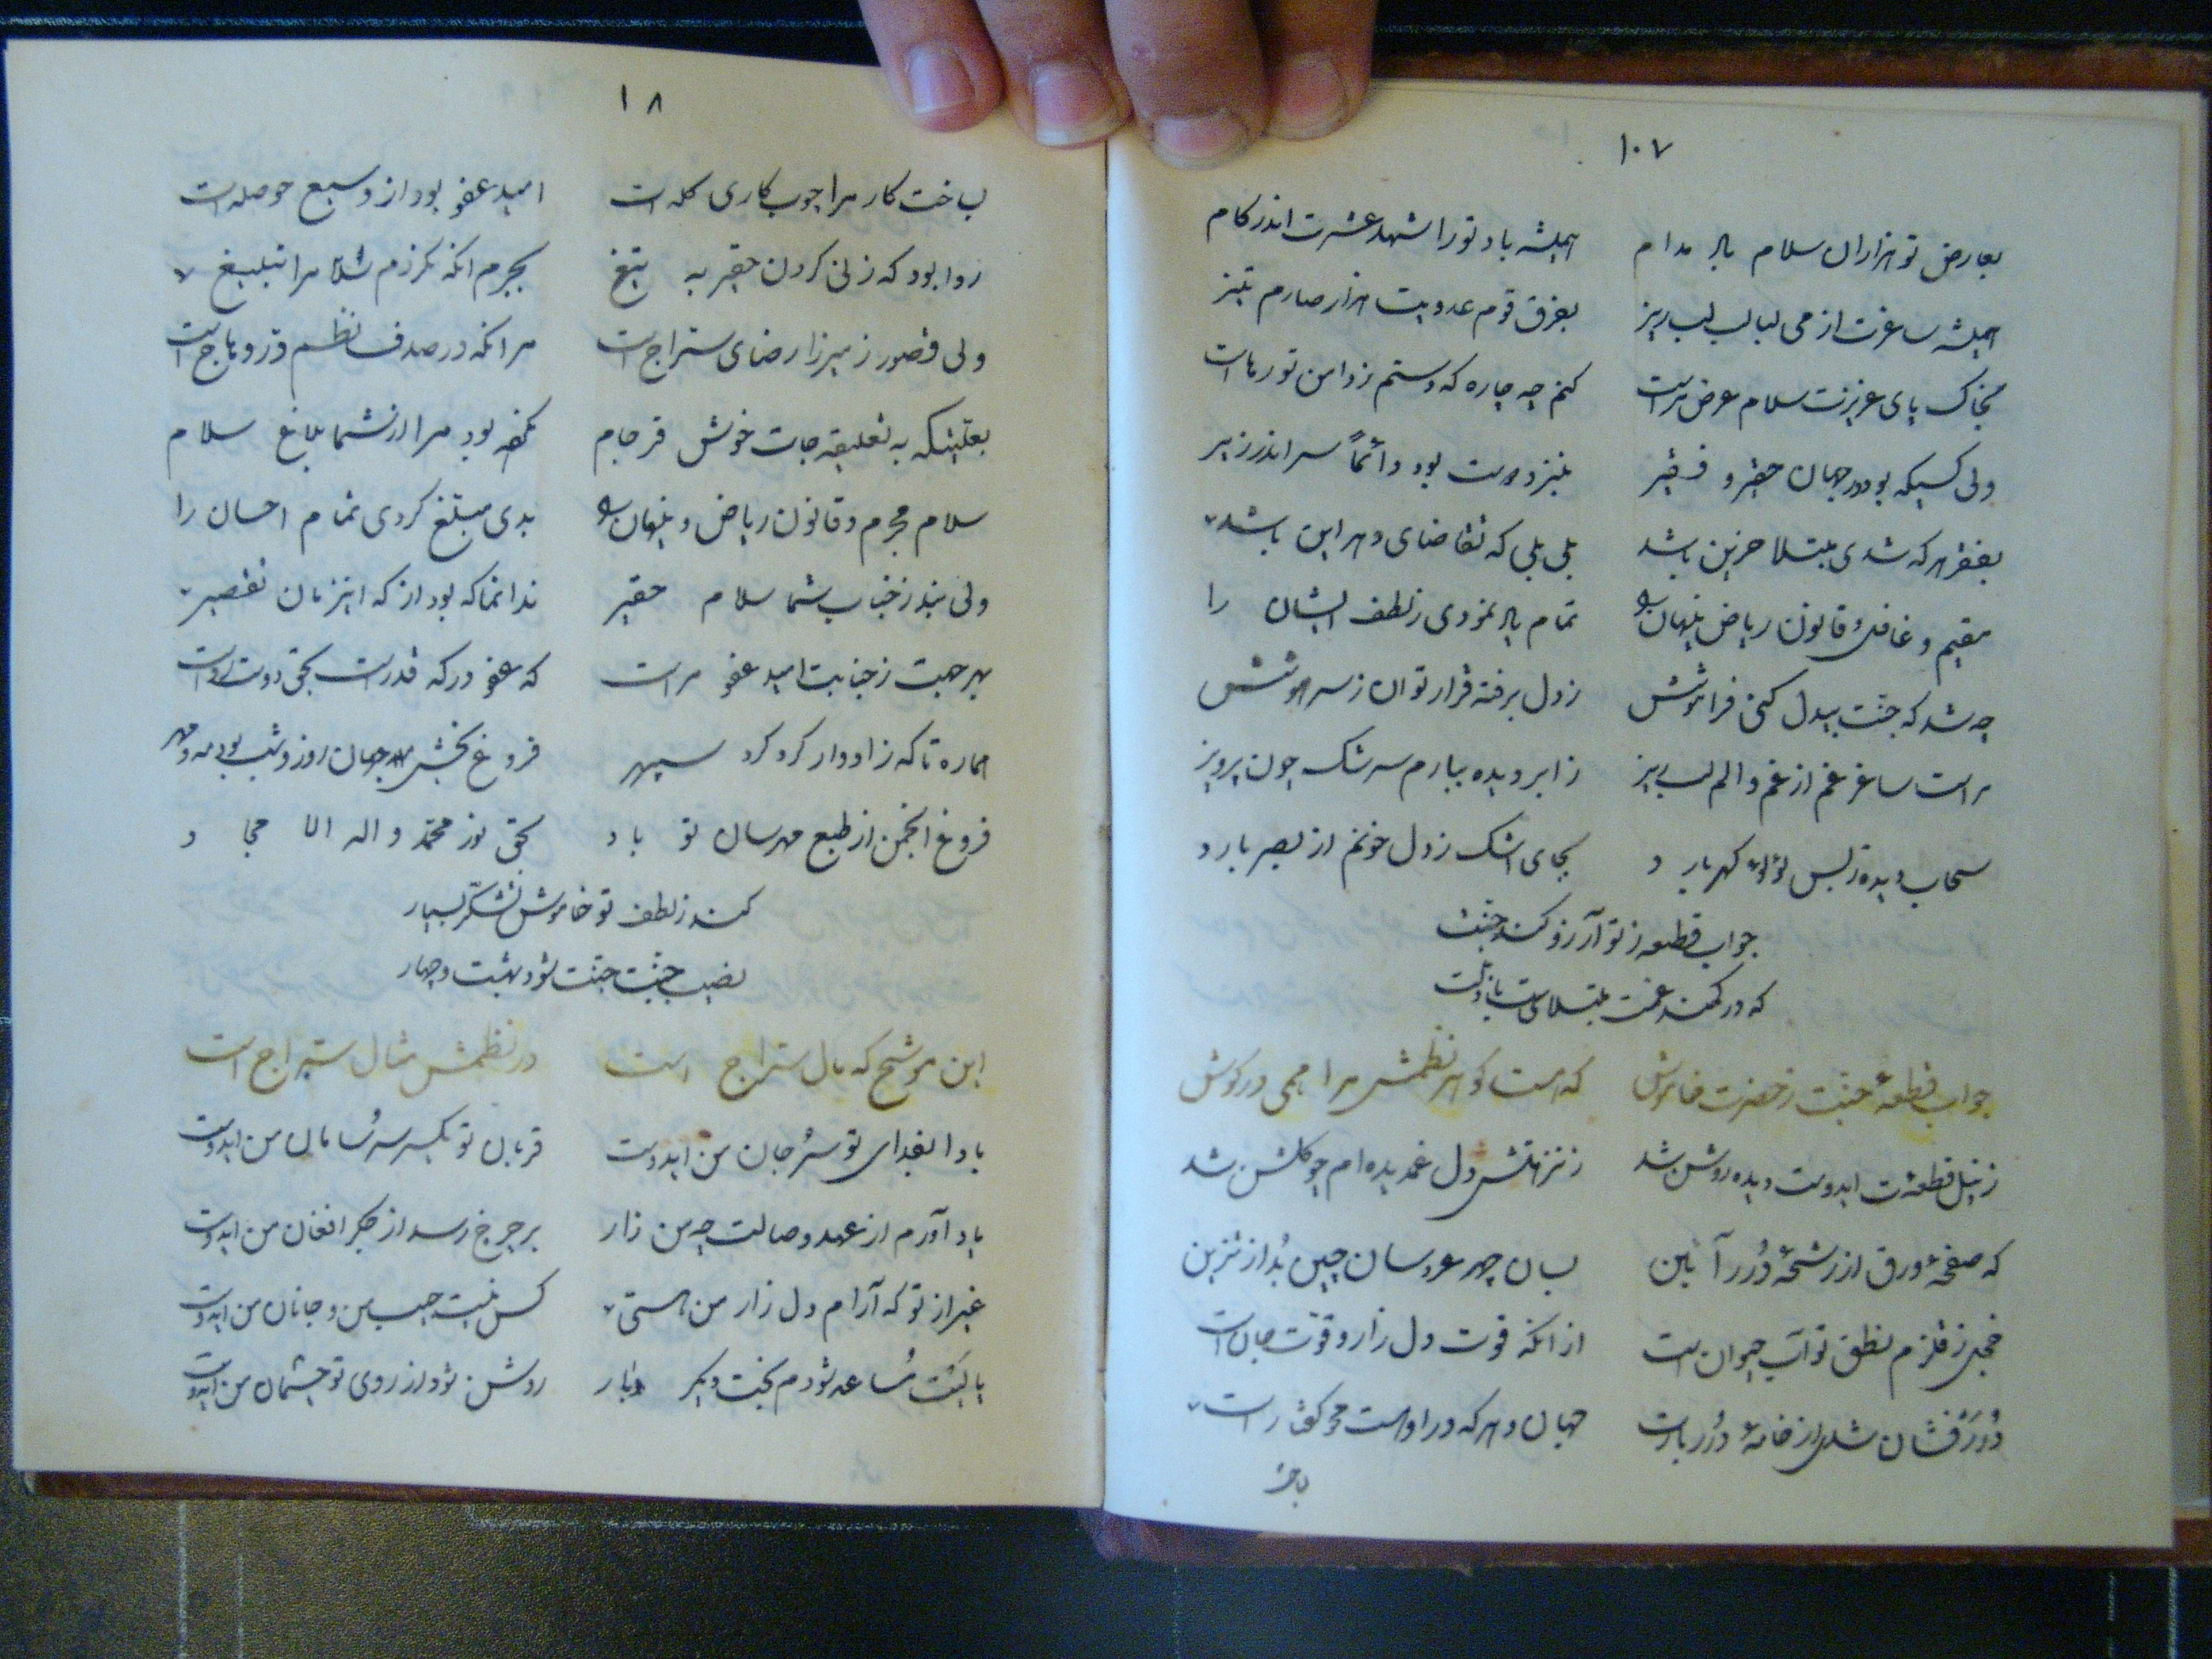 ۱۰۷
بعارض تو هزاران سلام باد مدام همیشه باد تورا شهد عشرت اندر کام
همیشه ساغرت از می لبالب لبریز بفرق قوم عدویت هزار صارم تیز
بخاک پای عزیزت سلام عرض مراست کنم چه چاره که دستم ز دامن تو رهاست
ولی کسیکه بود در جهان حقیر و فقیر بنزد دوست بود دائماً سر اندر زیر
بفقر هر که شدی مبتلا حزین باشد بلی بلی که تقاضای دهر این باشد
مقیم و غافل و قانون ریاض پنهان تمام یاد نمودی ز لطف ایشان را
چه شد که جنت بیدل کنی فراموشش ز دل برفته قرار توان ز سر هوشش
مراست ساغر غم از غم و الم لبریز ز ابر دیده ببارم سرشک چون پرویز
سحاب دیده ز بس لؤلؤ گهر بارد بجای اشک ز دل خونم از بصر بارد
جواب قطعه ز تو آرزو کند جنت
که در کمند غمت مبتلاست
جواب قطعهٔ جنت ز حضرت خاموش که هست گوهر نظمش مرا همی در گوش
ز نیل قطعه‌ت ایدوست دیده روشن شد ز نزهتش دل غمدیده‌ام چو گلشن شد
که صفحهٔ ورق از رشحهٔ دُرر آئین بسان چهر عروسان چین بُد از تزیین
خجل ز قلزم نطق تو آب حیوان است از آنکه قوت دل زار و قوّت جان است
دُررفشان شدی از خامهٔ دُرر بارت جهان و هر که در اوست
۱۸
بساخت کار مرا چوب کاری گله‌ات امید عفو بود از وسیع حوصله‌ات
روا بود که زنی گردن حقیر به تیغ بجرم آنکه نکردم سلام را تبلیغ
ولی قصور ز میرزا رضای سراج است مر آنکه در صدف نظم دُر وهاج است
بعلتیکه به تعلیقه‌جات خوش فرجام نگفته بود مرا از شما بلاغ سلام
سلام محرم و قانون ریاض و پنهان بدی مبلغ کردی تمام احسان را
ولی نبد ز جناب شما سلام حقیر ندانما که بود از که این زمان تقصیر
بهر جهت ز جنابت امید عفو مراست که عفو در که قدرت بحق دوست رواست
هماره تا که ز ادوار گرد کرد سپهر فروغ بخش جهان روز و شب بود مه و مهر
فروغ انجمن از طبع مهرسان تو باد بحق نور محمد و اله الامجاد
کند ز لطف تو خاموش تشکر بسیار
نصیب جنت جنت شود بهشت و چهار
این موشح که مال سراج است در نظمش مثال سراج است
بادا بفدای تو سر و جان من ایدوست قربان تو یکسر سر و سامان من ایدوست
یاد آورم از عهد وصالت چه من زار بر چرخ رسد از جگر افغان من ایدوست
غیر از تو که آرام دل زار من هستی کس نیست حبیب من و جانان من ایدوست
مُساعد شودم بخت دگر بار روشن شود از روی تو چشمان من ایدوست